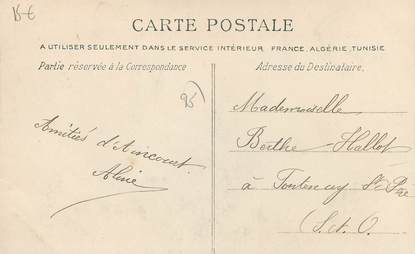 CARTE POSTALE
A UTILISER SEULEMENT DANS LE SERVICE INTÉRIEUR, FRANCE, ALGÉRIE, TUNISIE
Partie réservée à la Correspondance
Adresse du Destinataire,
95)
Amitiés d'Aincourt.
Aline
Mademoiselle
Berthe Hallot
à Fontenay St Père
(S. et O.